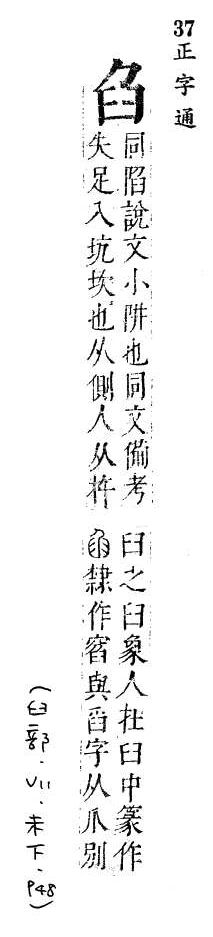 37 正字通
臽
同陷說文小阱也同文備考
失足入坑坎也从側人从杵
臼之臼象人在臼中篆作
隸作䆟與舀字从爪別
(臼部.VII.未下.P48)